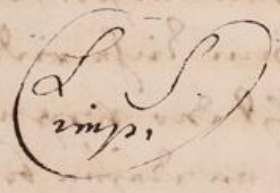 L. S.
imp.